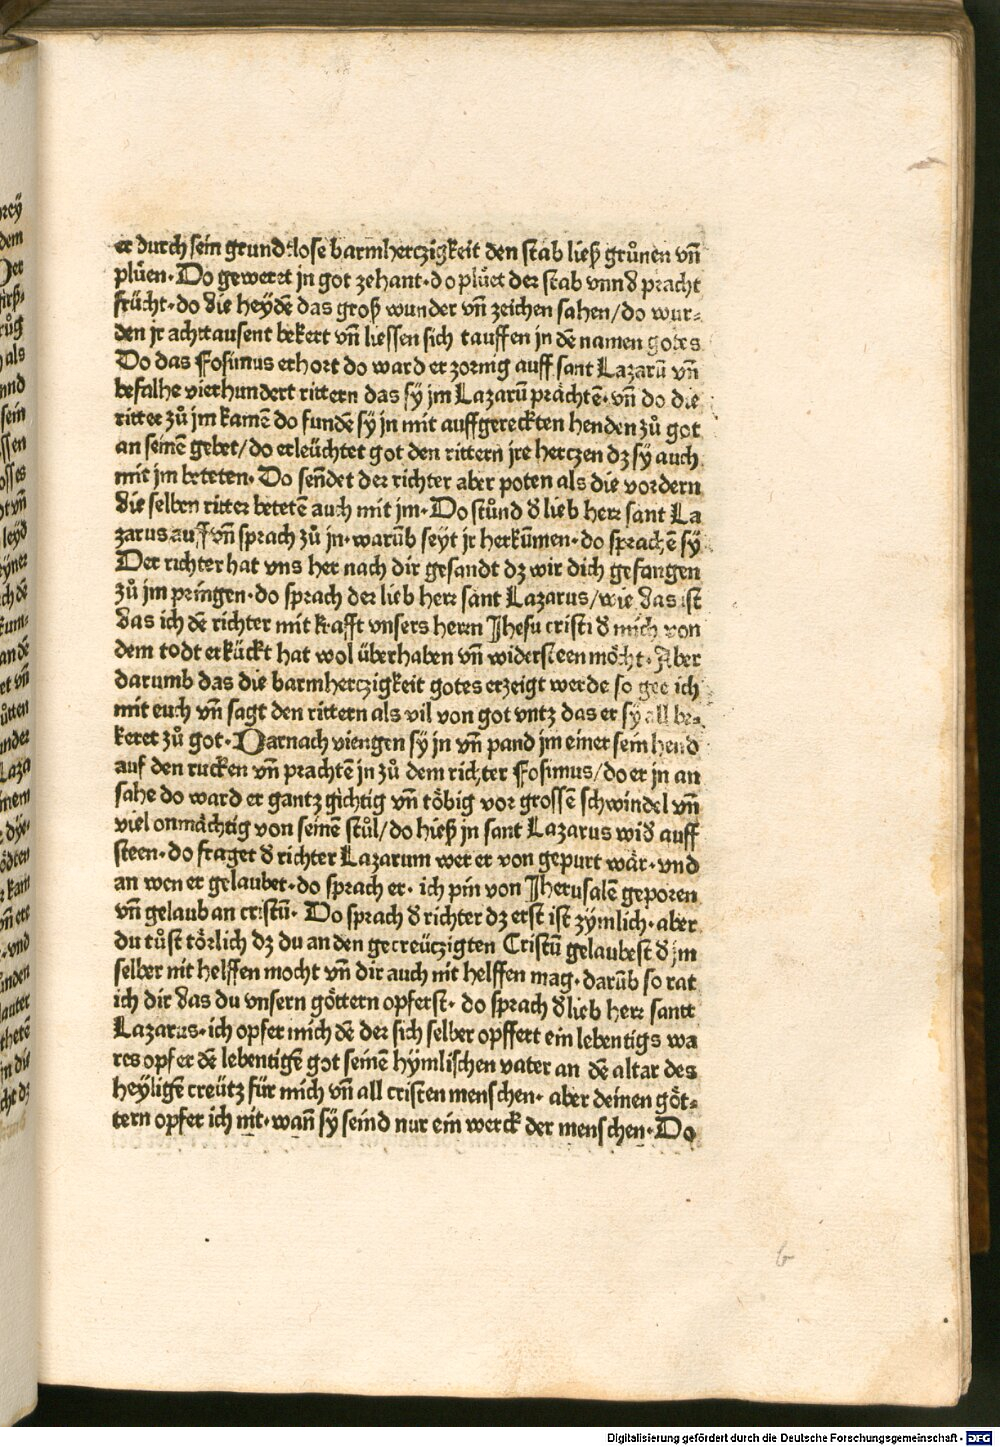 er durch sein grundtlose barmherczigkeit den stab ließ gruͦnen vñ
pluͤen· Do geweret jn got zehant· do pluͤet der stab vnnd pracht
fruͤcht· do die heydē das groß wunder vñ zeichen sahen/do wur⸗
den jr achttausent bekert vñ liessen sich tauffen in dē namen gotes
Do das Fosimus erhort do ward er zornig auff sant Lazarū vñ
befalhe vierhundert rittern das sÿ jm Lazarū praͤchtē· vñ do die
ritter zuͦ jm kamē do fundē sÿ jn mit auffgereckten henden zuͦ got
an seinē gebet/do erleuͤchtet got den rittern jre herczen dz sÿ auch
mit jm beteten· Do sendet der richter aber poten als die vordern
die selben ritter betetē auch mit jm· Do stuͦnd d̕ lieb herr sant La
zarus auff vñ sprach zuͦ jn· warūb seyt jr herkūmen· do sprachē sÿ
Der richter hat vns her nach dir gesandt dz wir dich gefangen
zuͦ jm pringen· do sprach der lieb herr sant Lazarus/wie das ist
das ich dē richter mit krafft vnsers herrn Jhesu cristi d̕ mich von
dem todt erkuͤckt hat wol uͤberhaben vñ widersteen moͤcht· Aber
darumb das die barmherczigkeit gotes erzeigt werde so gee ich
mit euch vñ sagt den rittern als vil von got vntz das er sÿ all be⸗
keret zuͦ got· Darnach viengen sÿ jn vñ pand jm einer sein hend
auf den rucken vñ prachtē jn zuͦ dem richter Fosimus/do er jn an
sahe do ward er gantz gichtig vñ toͤbig vor grossē schwindel vñ
viel onmaͤchtig von seinē stuͦl/do hieß jn sant Lazarus wid̕ auff
steen· do fraget d̕ richter Lazarum wer er von gepurt waͤr· vnd
an wen er gelaubet· do sprach er· ich pin von Jherusalē geporen
vñ gelaub an cristū· Do sprach d̕ richter dz erst ist zymlich· aber
du tuͦst toͤrlich dz du an den gecreuͤczigten Cristū gelaubest d̕ jm
selber nit helffen mocht vñ dir auch nit helffen mag· darūb so rat
ich dir das du vnsern goͤttern opferst· do sprach d̕ lieb herr santt
Lazarus· ich opfer mich dē der sich selber opffert ein lebentigs wa
res opfer dē lebentigē got seinē hymlischen vater an dē altar des
heyligē creuͤtz fuͤr mich vñ all cristen menschen· aber deinen goͤt⸗
tern opfer ich nit· wañ sÿ seind nur ein werck der menschen· Do
Digitalisierung gefördert durch die Deutsche Forschungsgemeinschaft - DFG